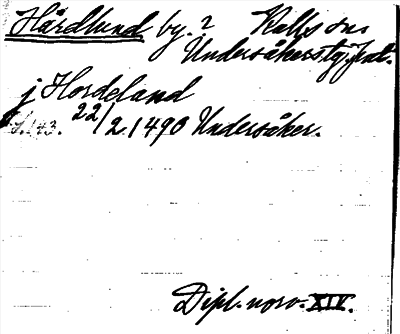 Hårdlund by. 2 Kalls sn.
Undersåkers tg. Jtl.
j Hordeland
S. 143. 22/2 1490 Undersåker.
Dipl. norv. XIV.